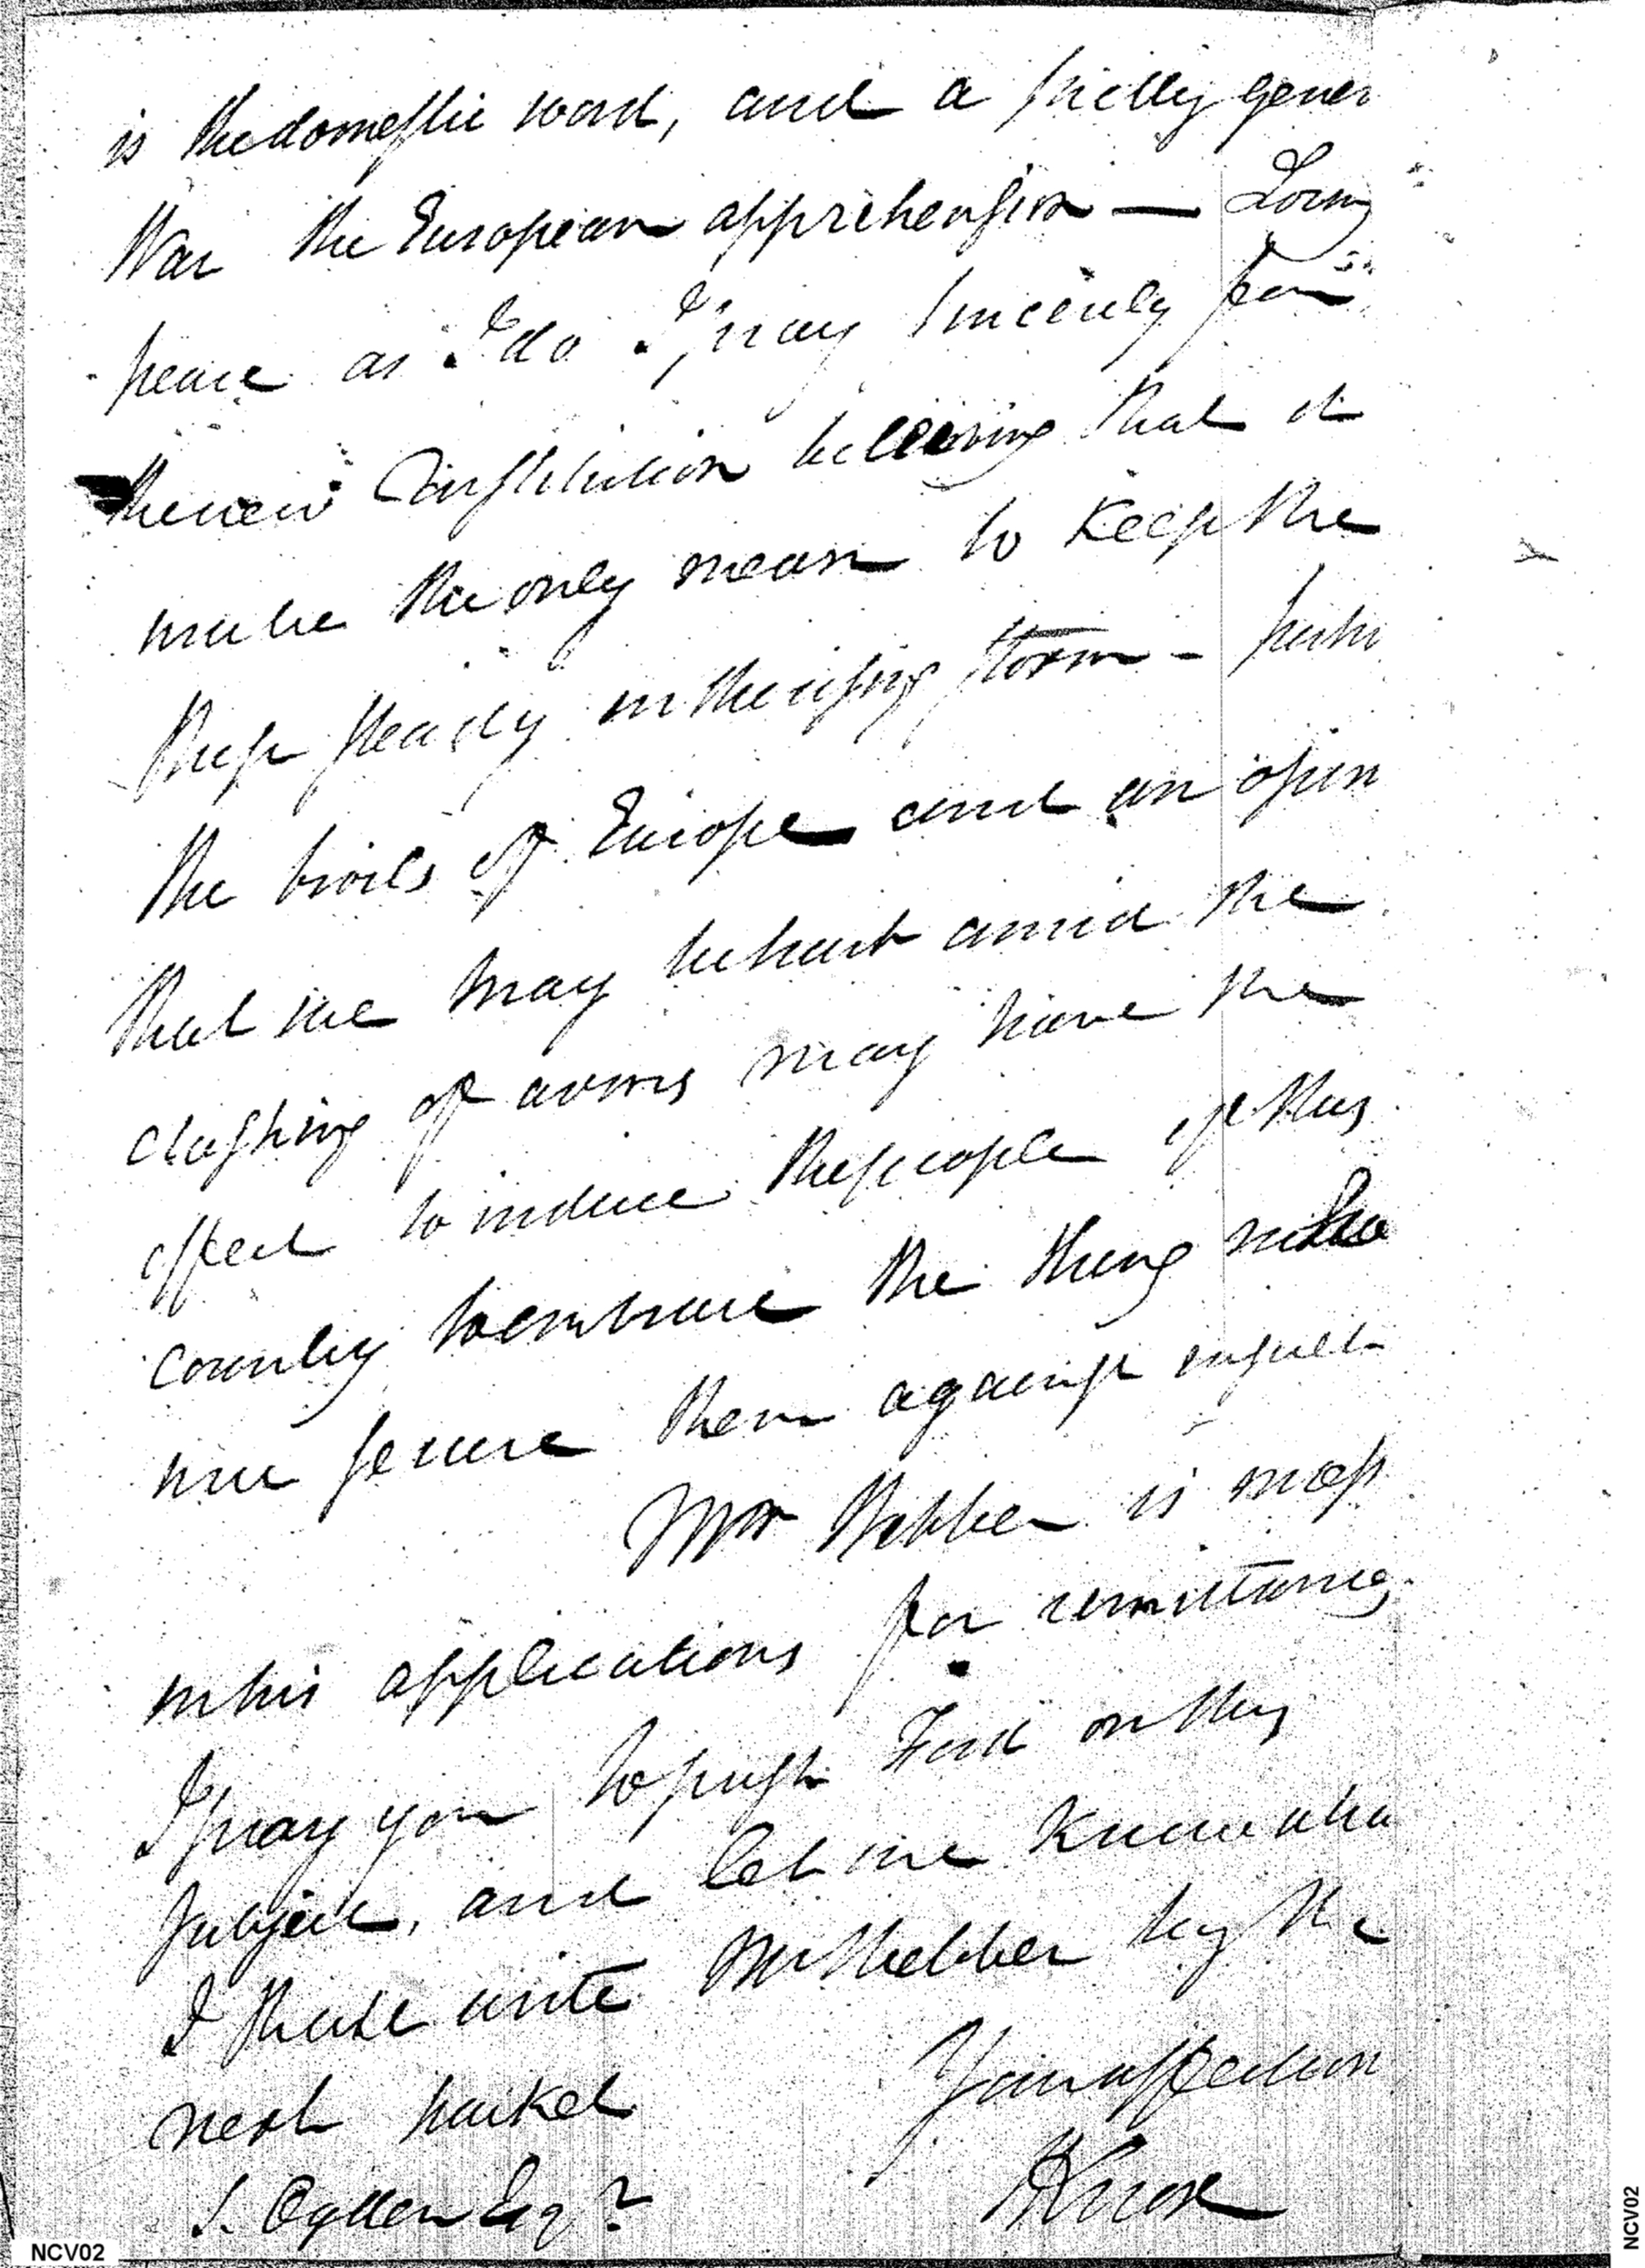 is the domestic word, and a pretty gener
War the European apprehension — Loving
peace as I do I pray sincerely for
the new Constitution believing that it
will be the only mean to keep the
Ship steady in the rising storm - perhaps
the broils of Europe and an opin
that we may be hurt amid the
clashing of arms may have the
effect to induce the people of this
country to embrace the thing which
will secure them against insult
Mr Webber is most
in his applications for remittances
I pray you to push Ford on this
subject, and let me know wha
I shall write Mr Webber by the
next packet
Your affection
HKnox
S. Ogden Esqr
NCV02
NCV02